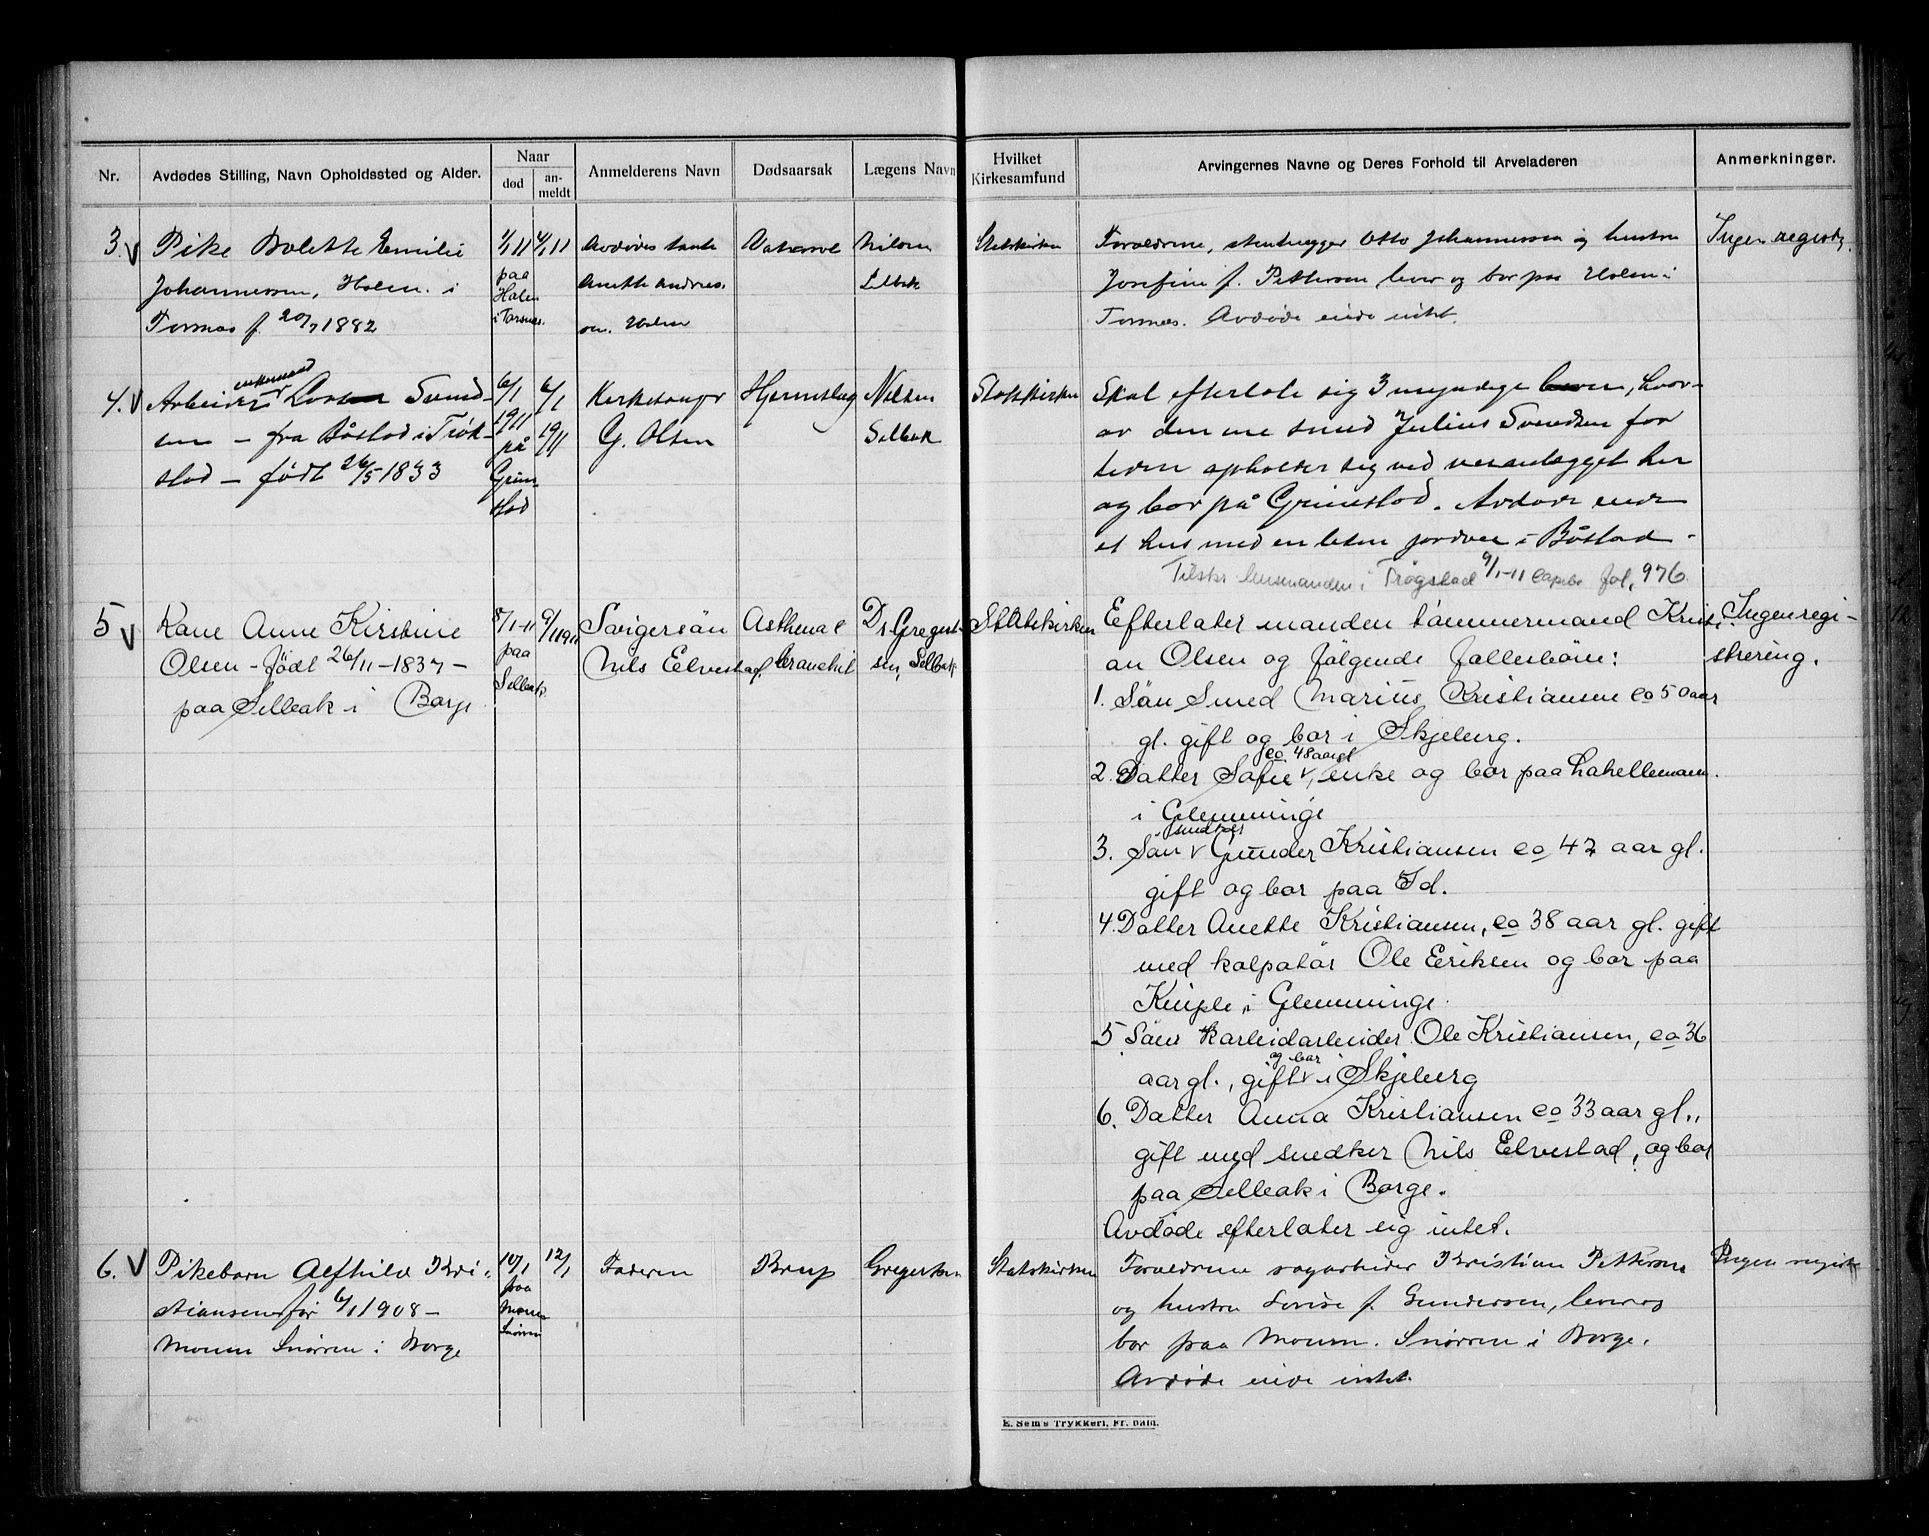 Nr.
Avdødes Stilling, Navn Opholdssted og Alder.
Naar
død
an-
meldt
Anmelderens Navn
Dødsaarsak
Lægens Navn
Hvilket
Kirkesamfund
Arvingernes Navne og Deres Forhold til Arveladeren
Anmerkninger.
3. V
Pike Bolette Emilie
Johannessen, Holm i
Torsnes f. 20/7 1882
1/1 11
paa
Holm
i Torsnes.
4/1 11
Avdødes tante
Anette Andrea-
sen. Holm
Nilsen
Selbak
Statskirken
Forældrene, stenhugger Otto Johannessen og hustru
Josefine f. Pettersen lever og bor paa Holm i
Torsnes. Avdøde eiede intet.
Ingen registr.
4. V
enkemand
Arbeider Svend-
sen – fra Båstad i Trøk-
stad – født 26/5 1833
6/1
1911
på
Grim-
stad
6/1
1911
Kirkesanger
G. Olsen
Hjerneslag
Nilsen
Selbak
Statskirken
Skal efterlate sig 3 myndige barn, hvor-
av den ene smed Julius Svendsen for
tiden opholder sig ved veranlegget her
og bor på Grimstad. Avdøde eiede
et hus med en liten jordvei i Båstad –
Tilskr. lensmanden i Trøgstad 9/1-11 Copibo fol. 976.
5 V
Kone Anne Kirstine
Olsen – født 26/11 – 1837 –
paa Selbak i Borge
8/1-11
paa
Selbak
9/1 1911
Svigersøn
Nils Elvestad.
Asthma &
bronchit
Dr Gregert-
sen, Selbak
Statskirken
Efterlater manden tømmermand Kristi-
an Olsen og følgende fællesbørn:
1. Søn Smed Marius Kristiansen ca 50 aar
gl. gift og bor i Skjeberg.
ca 48 aar gl
2. Datter Sofie V, enke og bor paa Lahellemoen.
i Glemminge
snedker
3. Søn V Gunder Kristiansen ca 42 aar gl.
gift og bor paa Id.
4. Datter Anette Kristiansen, ca 38 aar gl. gift
med kolpotør Ole Eriksen og bor paa
Kniple i Glemminge.
5. Søn Karbidarbeider Ole Kristiansen, ca 36
og bor
aar gl., gift V i Skjeberg
6. Datter Anna Kristiansen ca 33 aar gl.,
gift med snedker Nils Elvestad, og bor
paa Selbak i Borge.
Avdøde efterlater sig intet.
Ingen regi-
strering.
6. V
Pikebarn Alfhild Kri-
stiansen før 6/1 1908 –
Moum Snørren i Borge
10/1
paa
Moum
Snørren
12/1
Faderen
Krup
Gregertsen
Statskirken
Forældrene sagarbeider Kristian Pettersen
og hustru Lovise f. Gundersen, lever og
bor paa Moum. Snørren i Borge.
Avdøde eiede intet.
Ingen registr
E. Sem's Trykkeri, Fr. hald.